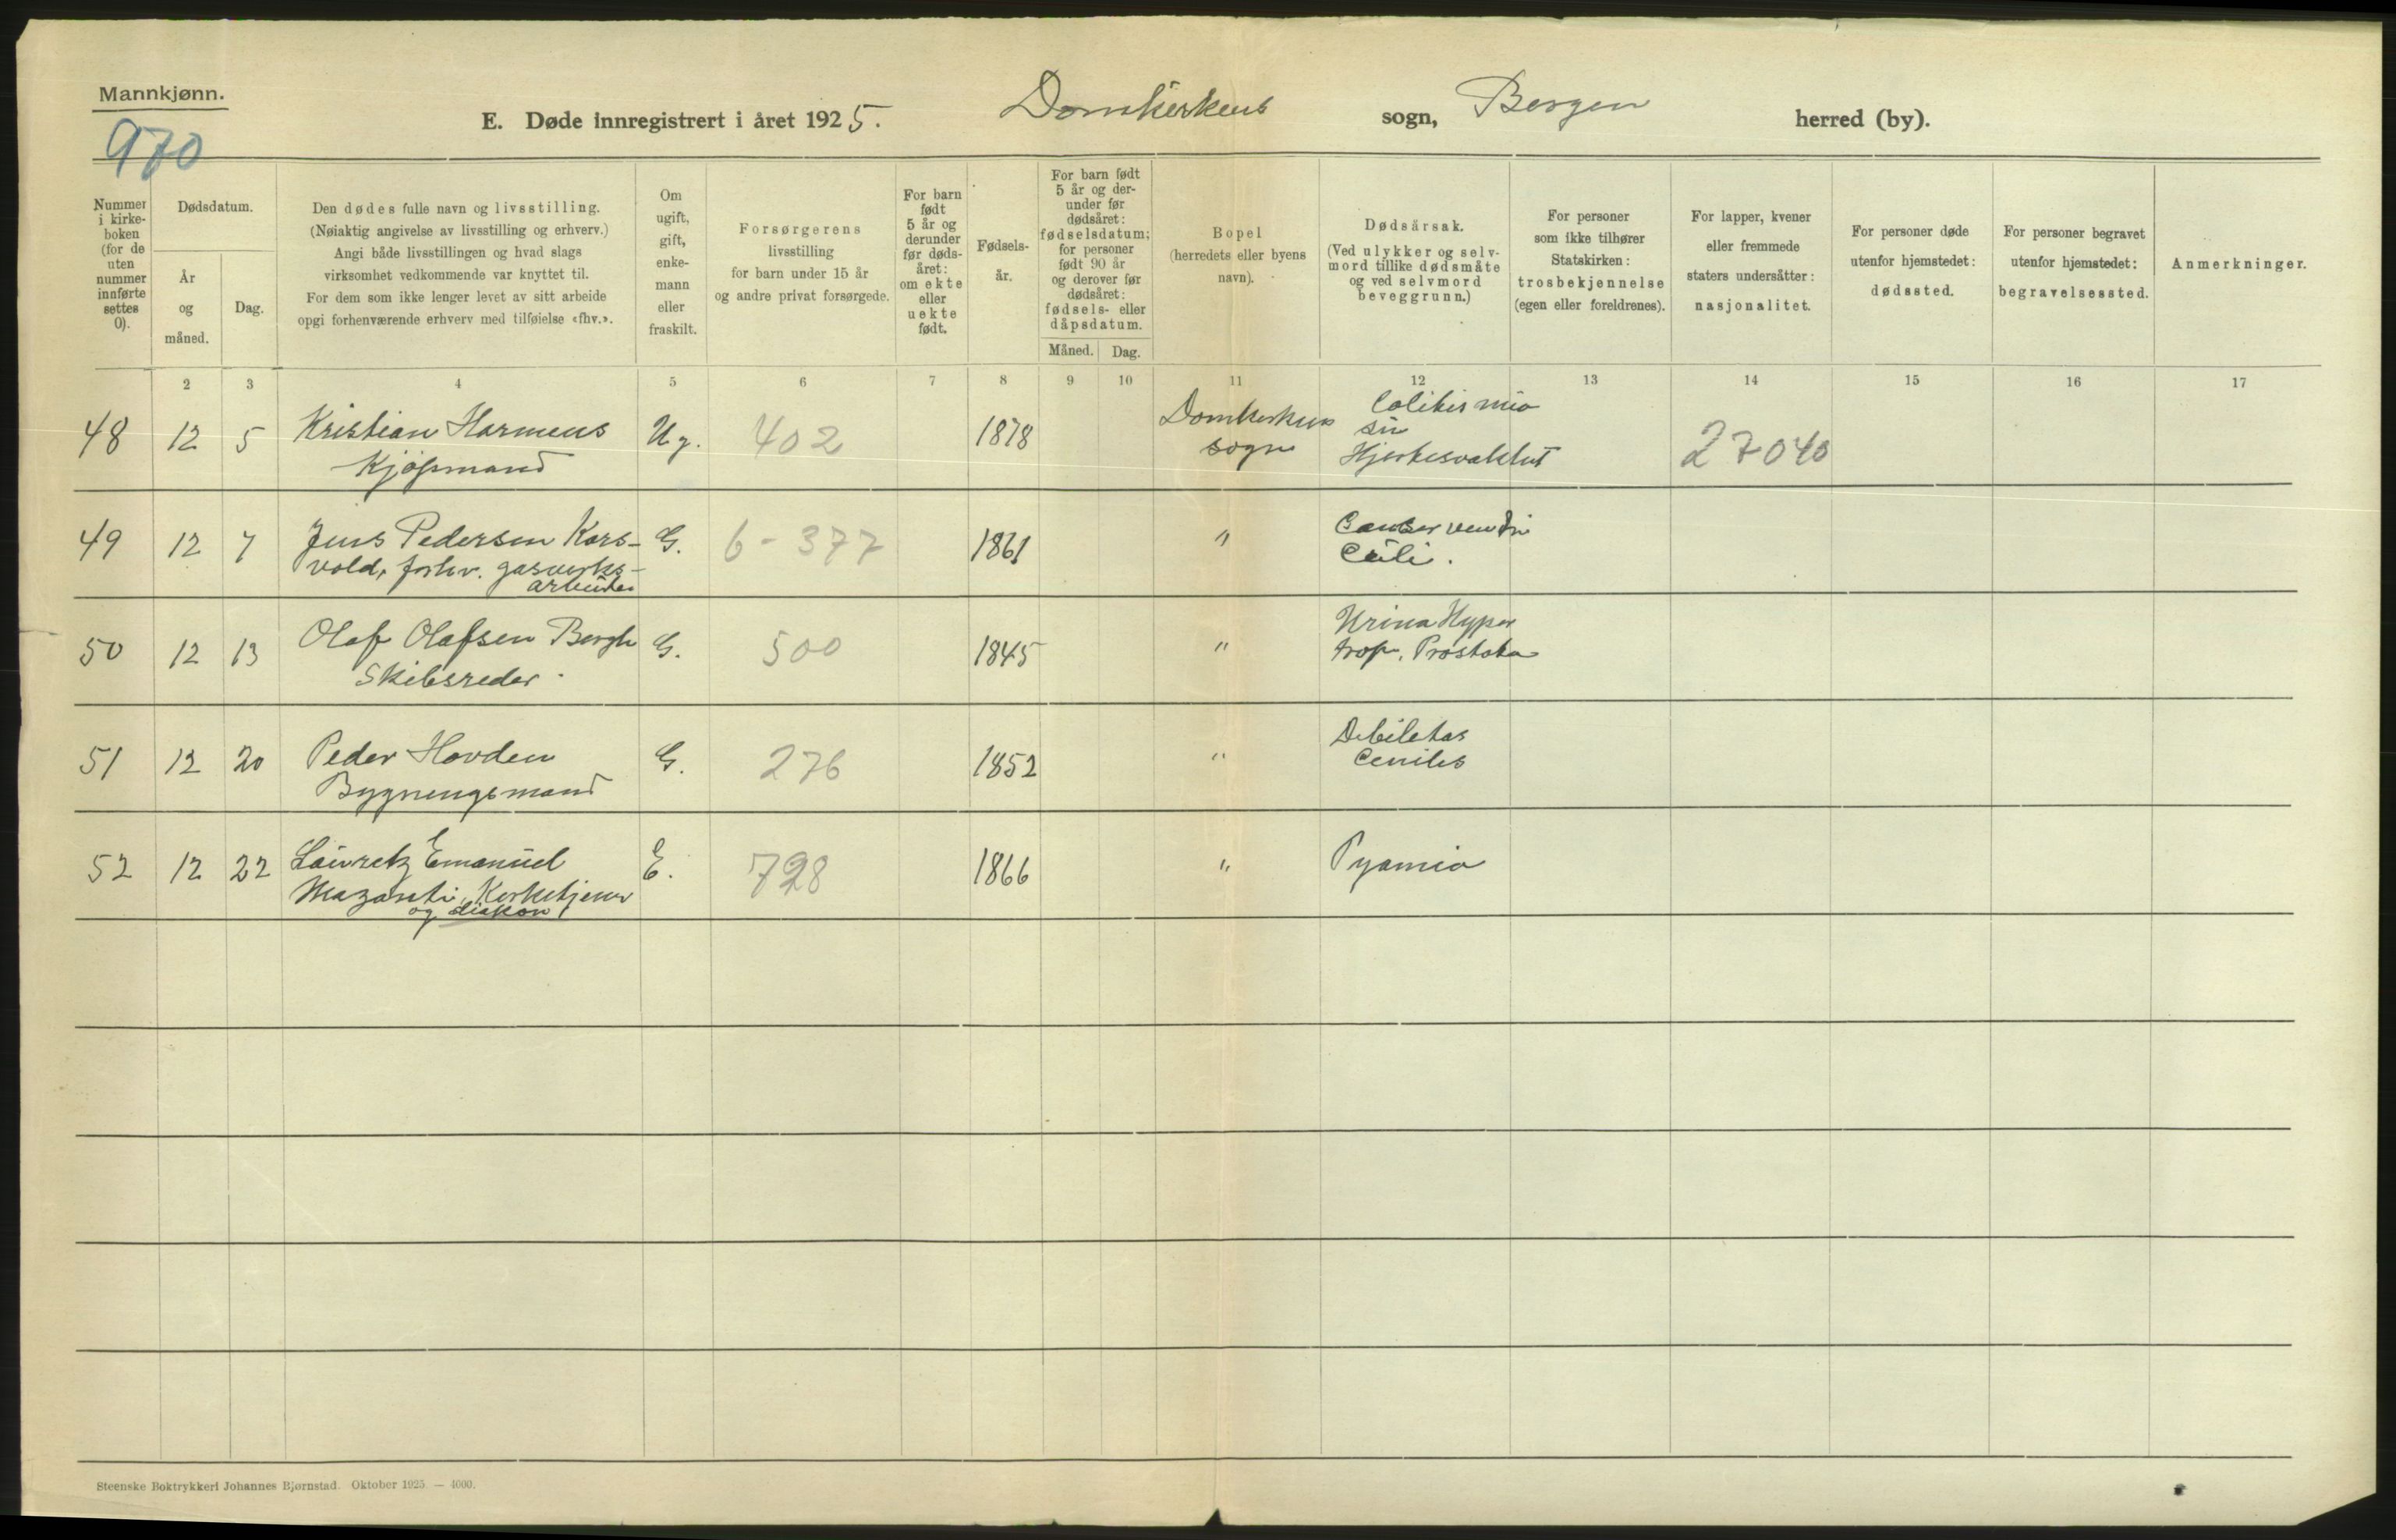 Mannkjønn.
970
E. Døde innregistrert i året 1925. Domkirkens sogn, Bergen herred (by).
Nummer
i kirke-
boken
(for de
uten
nummer
innførte
settes
0).
Dødsdatum.
År
og
måned.
Dag.
Den dødes fulle navn og livsstilling.
(Nøiaktig angivelse av livsstilling og erhverv.)
Angi både livsstillingen og hvad slags
virksomhet vedkommende var knyttet til.
For dem som ikke lenger levet av sitt arbeide
opgi forhenværende erhverv med tilføielse «fhv.».
Om
ugift,
gift,
enke-
mann
eller
fraskilt.
Forsørgerens
livsstilling
for barn under 15 år
og andre privat forsørgede.
For barn
født
5 år og
derunder
før døds-
året:
om ekte
eller
uekte
født.
Fødsels-
år.
For barn født
5 år og der-
under før
dødsåret:
fødselsdatum;
for personer
født 90 år
og derover før
dødsåret:
fødsels- eller
dåpsdatum.
Måned. Dag.
Bopel
(herredets eller byens
navn).
Dødsårsak.
(Ved ulykker og selv-
mord tillike dødsmåte
og ved selvmord
beveggrunn.)
For personer
som ikke tilhører
Statskirken:
trosbekjennelse
(egen eller foreldrenes).
For lapper, kvener
eller fremmede
staters undersåtter:
nasjonalitet.
For personer døde
utenfor hjemstedet:
dødssted.
For personer begravet
utenfor hjemstedet:
begravelsessted.
Anmerkninger.
2 3 4 5 6 7 8 9 10 11 12 13 14 15 16 17
48 12 5 Kristian Harmens Ug. 402 1878 Domkirkens
Kjøpmand sogn
27040
49 12 7 Jens Pedersen Kors- G. 6-377 1861 "
vold, forhv. gasverks-
arbeider
50 12 13 Olaf Olafsen Bergh G. 500 1845 " Urina Hyper
Skibsreder. trop. Prostata
51 12 20 Peder Hovden G. 276 1852 " Debiletas
Bygningsmand Ceniles
52 12 22 Lauretz Emanuel E. 728 1866 " Pyamia
Mazanti, Kirketjener
og diakon
Steenske Boktrykkeri Johannes Bjørnstad. Oktober 1925 — 4000.